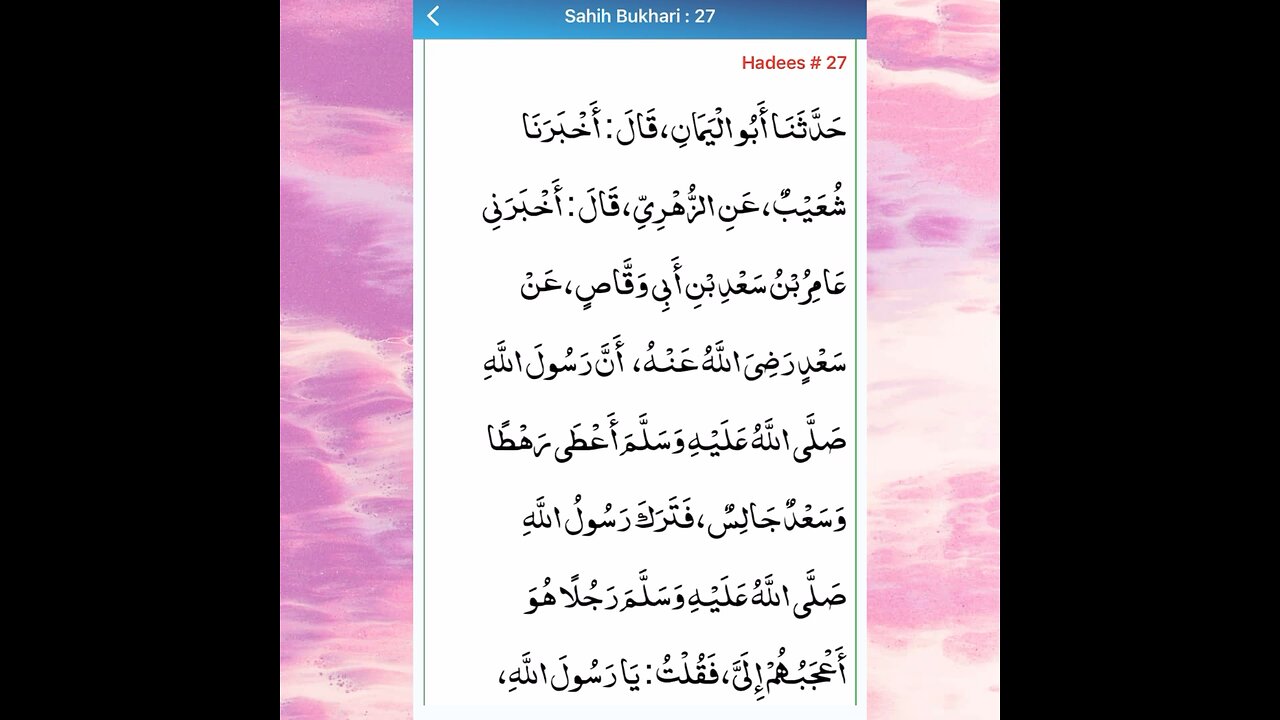 Sahih Bukhari : 27
Hadees # 27
حَدَّثَنَا أَبُو الْيَمَانِ، قَالَ: أَخْبَرَنَا
شُعَيْبٌ، عَنِ الزُّهْرِيِّ، قَالَ: أَخْبَرَنِي
عَامِرُ بْنُ سَعْدِ بْنِ أَبِي وَقَّاصٍ، عَنْ
سَعْدٍ رَضِيَ اللَّهُ عَنْهُ، أَنَّ رَسُولَ اللَّهِ
صَلَّى اللَّهُ عَلَيْهِ وَسَلَّمَ أَعْطَى رَهْطًا
وَسَعْدٌ جَالِسٌ، فَتَرَكَ رَسُولُ اللَّهِ
صَلَّى اللَّهُ عَلَيْهِ وَسَلَّمَ رَجُلًا هُوَ
أَعْجَبُهُمْ إِلَيَّ، فَقُلْتُ: يَا رَسُولَ اللَّهِ،